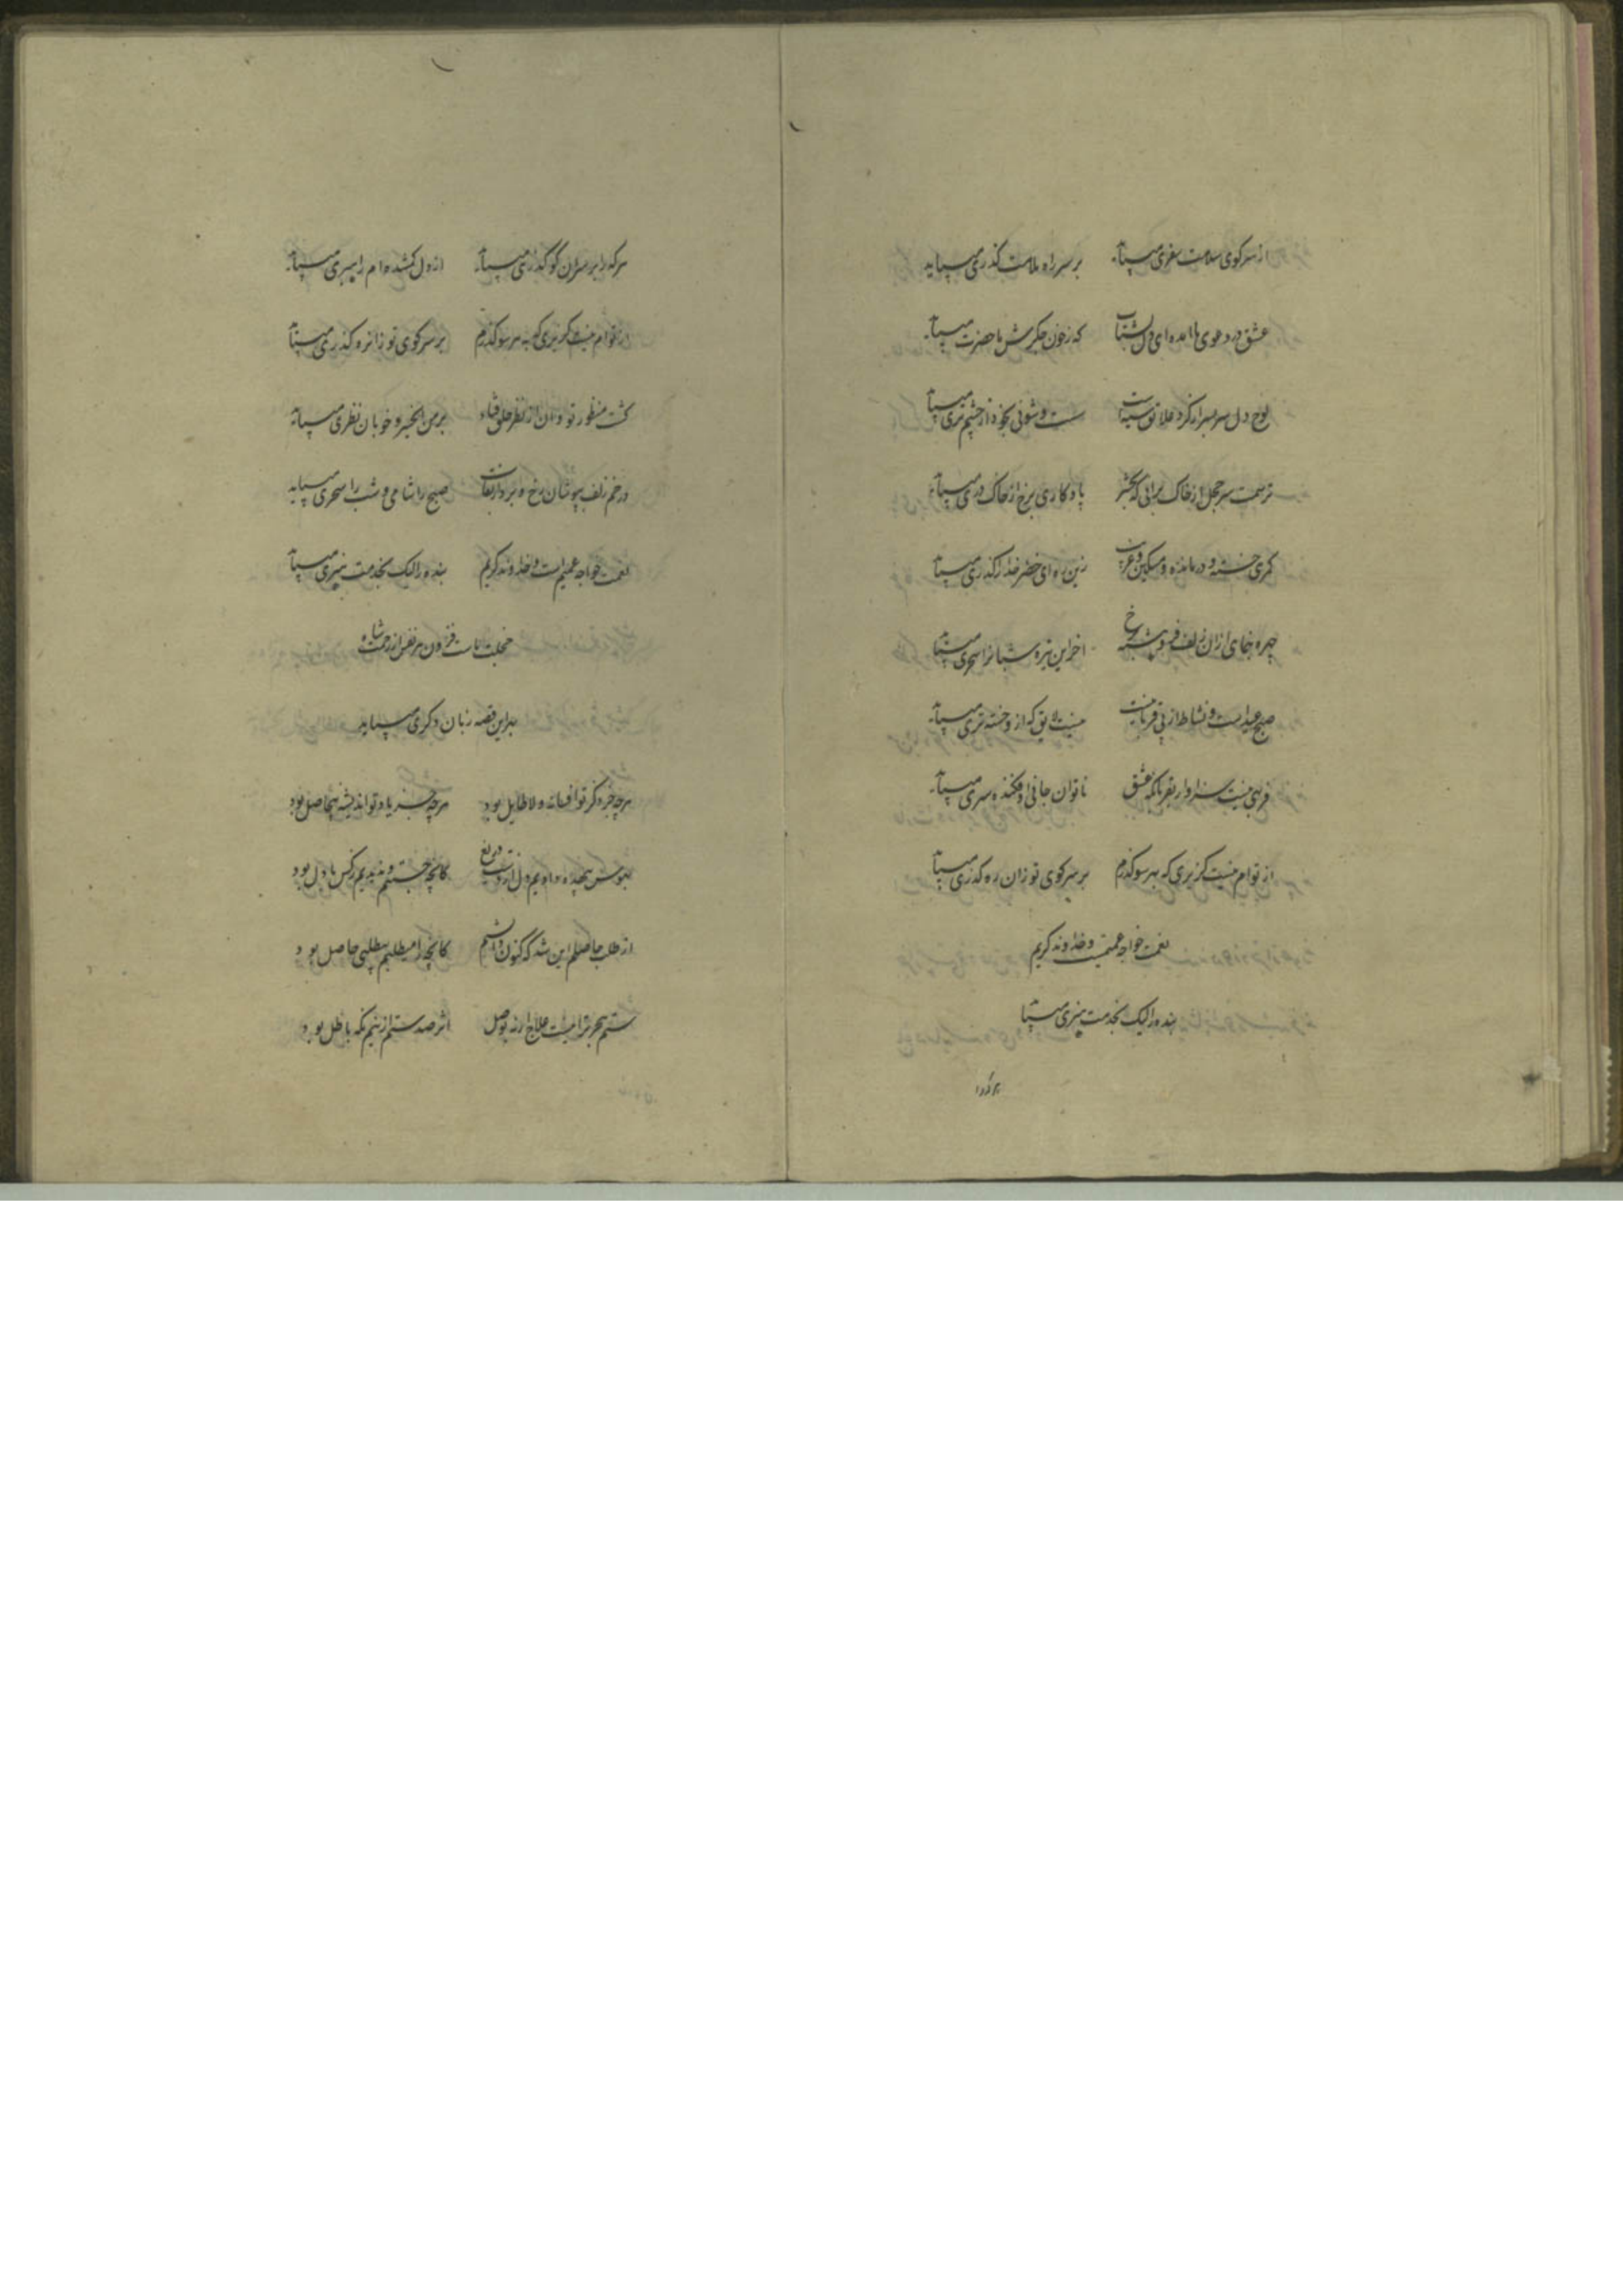 از سر کوی سلامت سفری میباید بر سر راه ملامت گذری میباید
عشق در دعوی ما آمده ای دل بشتاب که ز خون جگرش ما حضرت میباید
لوح دل سر بسر از گرد علایق سیه است شست و شوئی بخود از چشم تری میباید
ترسمت سر خجل از خاک برائی که بحشر یادکاری برخ از خاک دری میباید
کمری خسته و درمانده و مسکین و غریب زین ره ای خضر خدا را گذری میباید
چهره بنمای از ان زلف فروهشته برخ اخر این تیره شبانرا سحری میباید
صبح عید است و نشاط از پی قربانیست نیست لایق که از و خسته تری میباید
فربهی نیست سزاوار بقربانگه عشق ناتوان جانی و افکنده سری میباید
از توام نیست گزیری که بهر سو گذرم بر سر کوی تو زان ره گذری میباید
نعمت خواجه عمیمست و خداوند کریم
بنده را لیک بخدمت هنری میباید
هر که را بر سر ان کو گذری میباید از دل گمشده ام راهبری میباید
از توام نیست گزیری که بهر سو گذرم بر سر کوی تو زانره گذری میباید
گشت منظور تو و ان از نظر خلق فتاد بر من ای خسرو خوبان نظری میباید
در خم زلف بپوشان رخ و بردار نقاب صبح را شامی و شب را سحری میباید
نعمت خواجه عمیم است و خداوند کریم بنده را لیک بخدمت هنری میباید
خجلت ماست فزون هر نفس از رحمت شاه
بر این قصه زبان دگری میباید
هر چه جز ذکر تو افسانه و لاطایل بود هر چه جز یاد تو اندیشه بیحاصل بود
بیهده دادیم دل از دست دریغ کانچه جستیم و ندیدیم ز کس با دل بود
از طلب حاصلم این شد که کنون دانستم کانچه را میطلبم بیطلبی حاصل بود
ستم هجر ترا نیست علاج ار نه بوصل اثر صد ستم از نیم نگه باطل بود